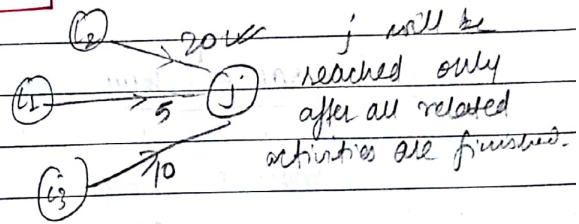 i2
20
j will be
reached only
i1
5
j
after all related
activities are finished.
i3
10